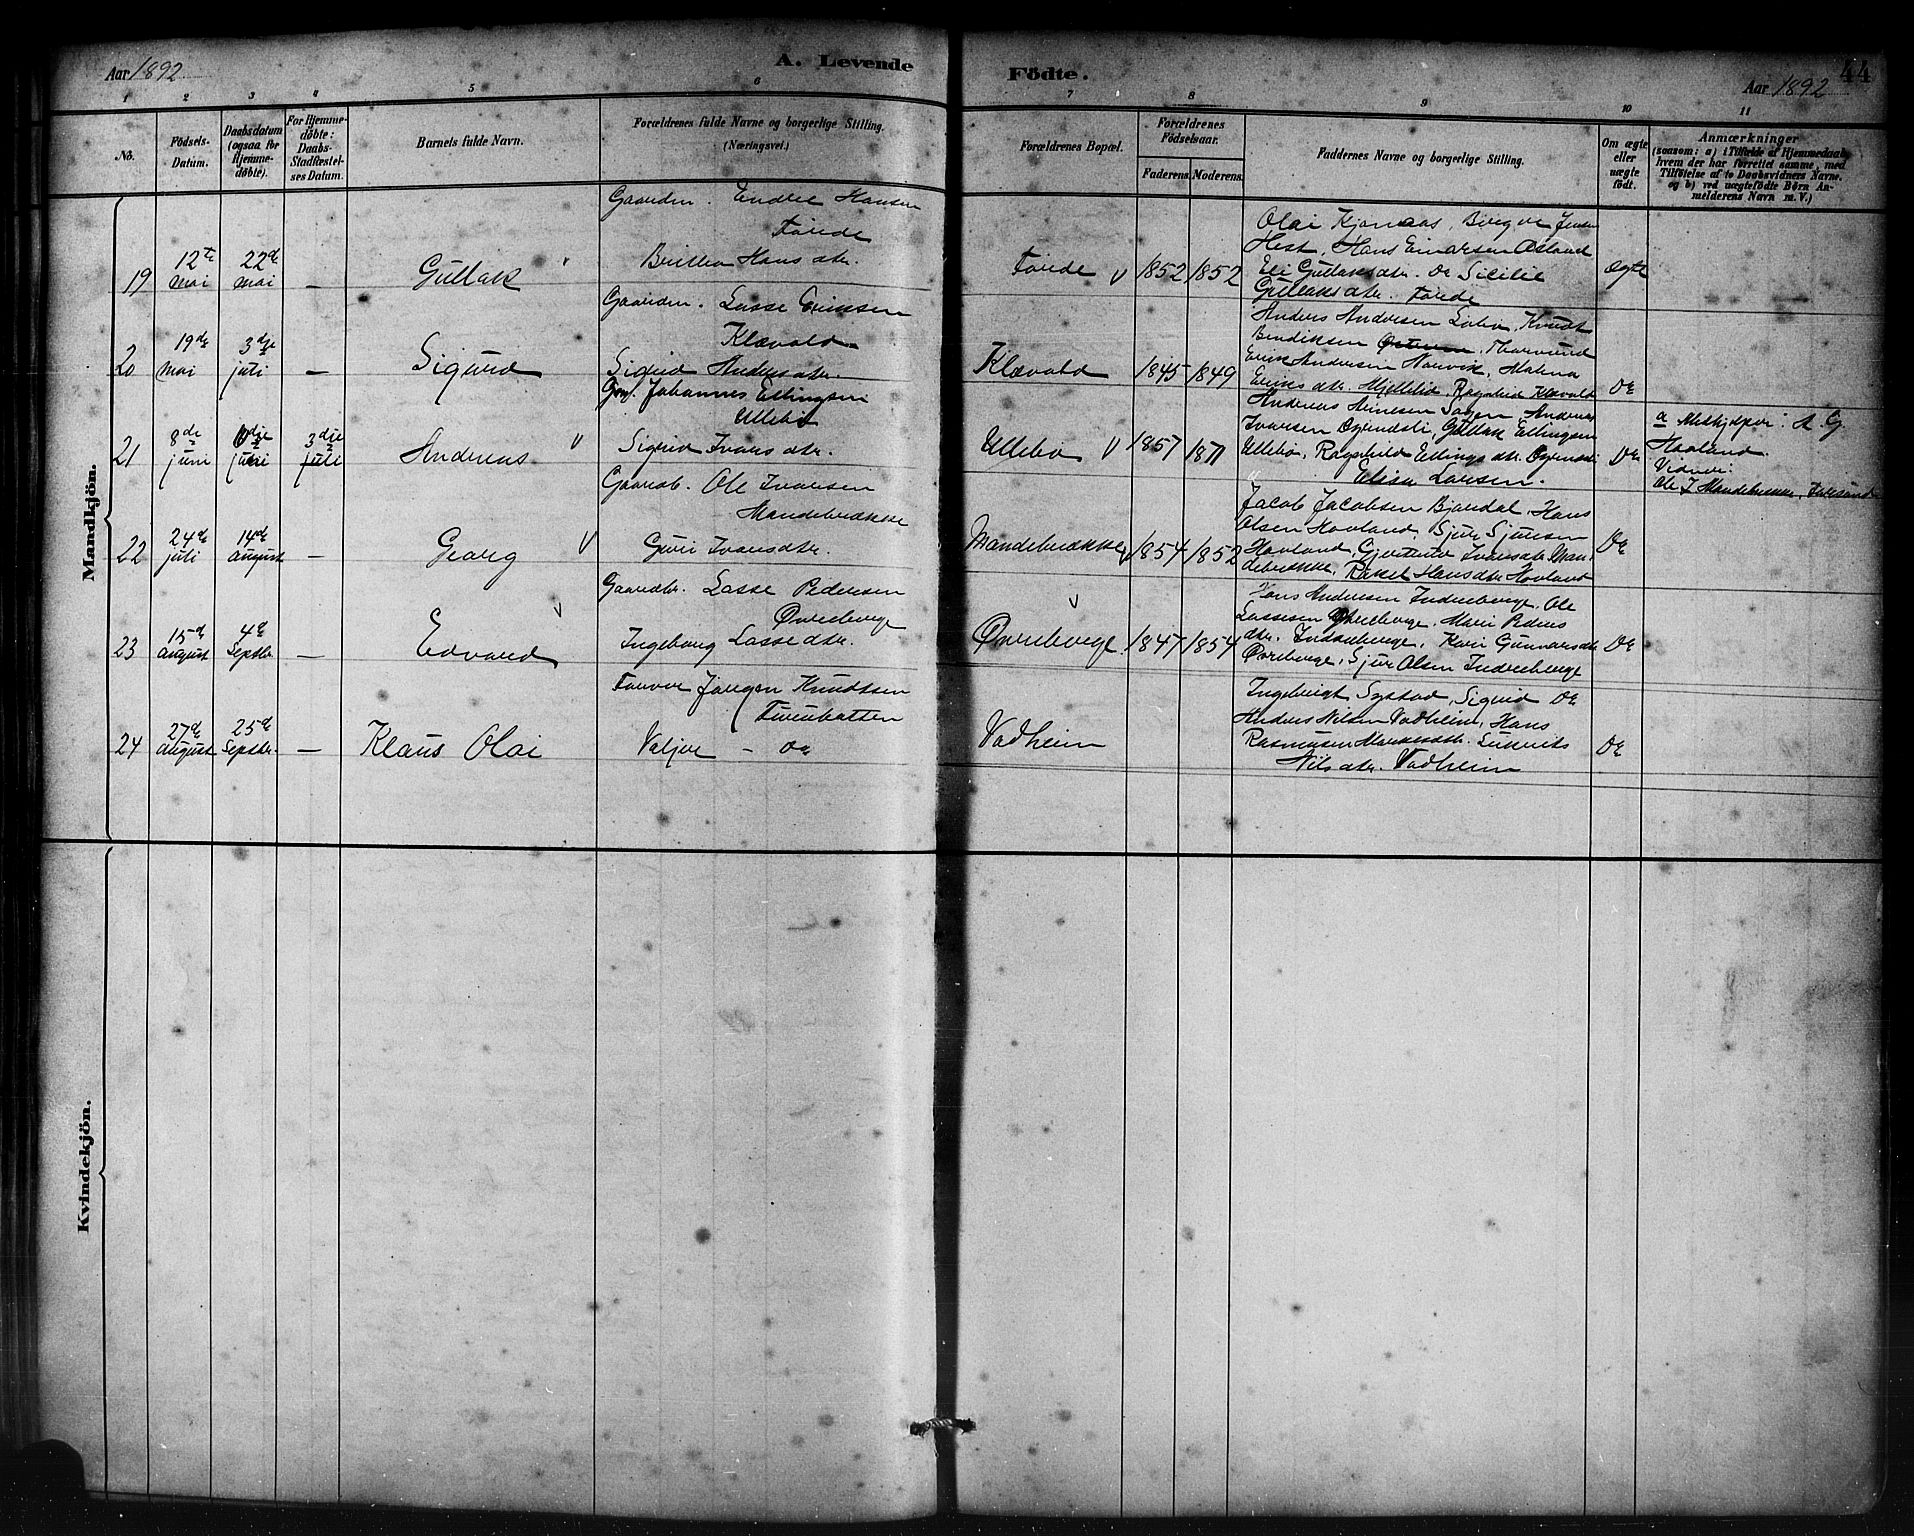 Aar 1892
A. Levende
Födte.
Aar 1892
44
1 2 3 4 5 6 7 8 9 10 11
No.
Födsels-
Datum.
Daabsdatum
(ogsaa for
Hjemme-
döbte).
For Hjemme-
döbte:
Daabs-
Stadfæstel-
ses Datum.
Barnets fulde Navn.
Forældrenes fulde Navne og borgerlige Stilling.
(Næringsvei.)
Forældrenes Bopæl.
Forældrenes
Födselsaar.
Faderens. Moderens.
Faddernes Navne og borgerlige Stilling.
Om ægte
eller
uægte
födt.
Anmærkninger
(saasom: a) i Tilfælde af Hjemmedaab,
hvem der har forrettet samme, med
Tilföielse af to Daabsvidners Navne.
og b) ved uægtefödte Börn An-
melderens Navn m. V.)
Mandkjön.
19
12te
mai
22de
mai
—
Gullak
Gaardm. Endre Hansen
Førde
Brithe Hansdtr.
Førde
1852 1852
Olai Kjønaas, Birger Jensen
Hest, Hans Einarsen Østand
Eli Gullaksdtr. Do Sicilie
Gullaksdtr. Førde
ægte
20
19de
mai
3dje
juli
—
Sigurd
Gaardm. Lasse Eriksen
Klævold
Sigrid Andersdtr.
Klævold
1845 1849
Anders Andersen Sølvi, Knudt
Bendiksen Tharsund
Erik Andersen Nanvik, Malena
Eriksdtr. Mjellelid, Ragnhild Klævold
Do
21
8de
juni
juni
3dje
juli
Andreas
Grm. Johannes Ellingsen
Ullebø
Sigrid Ivarsdtr.
Ullebø
1857 1871
Andreas Andreas
Ivarsen Gullak Ellingsen
Ullebø, Ragnhild Ellingsdtr.
Elisa Larsen.
Do
a Meshjelper: A. G.
Hovland.
Vidner:
Ole I Mandebrække,
22
24de
juli
14de
august
—
Georg
Gaardb. Ole Ivarsen
Mandebrække
Guri Ivarsdtr.
Mandebrække
1854 1852
Jacob Jacobsen Bjordal, Hans
Olsen Hovland, Sjur Sjursen
Hovland, Ivarsdtr. Man-
debrække, Rakel Hansdtr. Hovland
Do
23
15de
august
4de
Septbr.
—
Edvard
Gaardbr. Lasse Pedersen
Øvreberge
Ingeborg Lassedtr.
Øvreberge
1847 1854
Hans Andersen Indreberge, Ole
Lassesen Øvreberge, Mari Peders
dtr. Indreberge, Kari Gunnarsdtr
Øvreberge, Sjur Olsen Indreberge
Do
24
27de
august
25de
Septbr.
—
Klaus Olai
Farver Jørgen Knudtsen
Valjor - Do
Vadheim
Ingebrigt Systad, Sigrid Do
Anders Nilsen Vadheim, Hans
Rasmusen
Nilsdtr. Vadheim
Do
Kvindekjön.